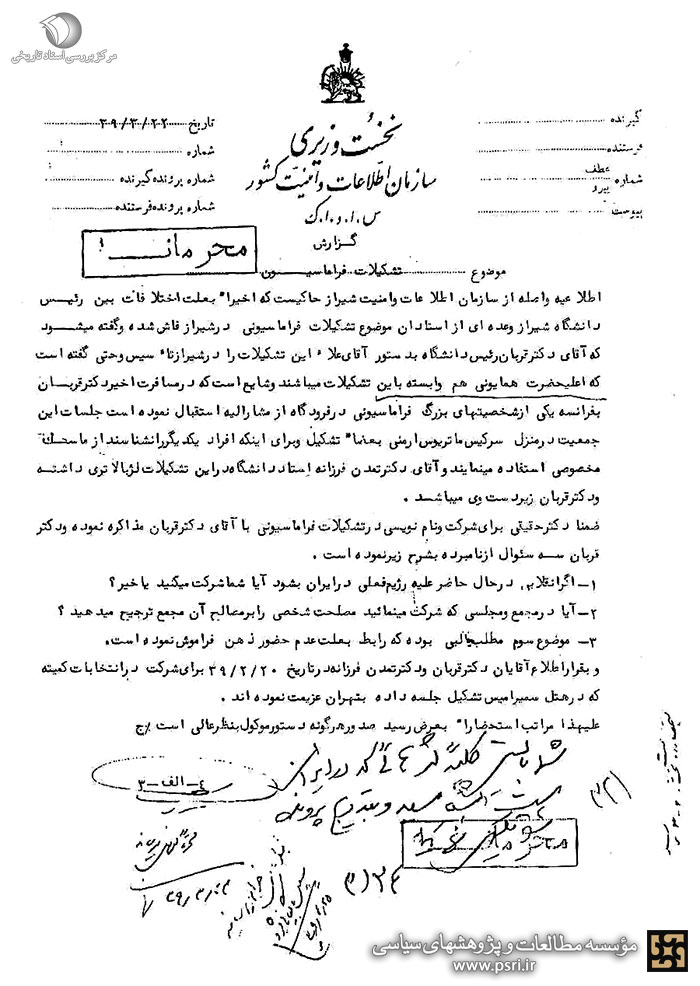 مرکز بررسی اسناد تاریخی
نخست وزیری
سازمان اطلاعات و امنیت کشور
س.ا.و.ا.ک
گیرنده
فرستنده
شماره عطف
پیرو
پیوست
تاریخ ۳۹/۳/۲۲
شماره
شماره پرونده گیرنده
شماره پرونده فرستنده
گزارش
محرمانه
موضوع تشکیلات فراماسیون
اطلاعیه واصله از سازمان اطلاعات وامنیت شیراز حاکیست که اخیرا" بعلت اختلافات بین رئیس
دانشگاه شیراز وعده ای از استادان موضوع تشکیلات فراماسیونی درشیراز فاش شده وگفته میشود
که آقای دکترقربان رئیس دانشگاه بدستور آقای علاء این تشکیلات را درشیراز تاسیس وحتی گفته است
که اعلیحضرت همایونی هم وابسته باین تشکیلات میباشند وشایع است که درمسافرت اخیر دکترقربان
بفرانسه یکی ازشخصیتهای بزرگ فراماسیونی درفرودگاه از مشارالیه استقبال نموده است جلسات این
جمعیت درمنزل سرکیس ماتریوس ارمنی بعضا" تشکیل وبرای اینکه افراد یکدیگررانشناسند از ماسکهای
مخصوصی استفاده مینمایند و آقای دکترتمدن فرزانه استاد دانشگاه دراین تشکیلات لژبالاتری داشته
ودکترقربان زیردست وی میباشد.
ضمنا دکترحقیقی برای شرکت ونام نویسی درتشکیلات فراماسیونی با آقای دکترقربان مذاکره نموده ودکتر
قربان سه سئوال ازنامبرده بشرح زیرنموده است.
۱- اگرانقلابی درحال حاضر علیه رژیم فعلی درایران بشود آیا شما شرکت میکنید یاخیر؟
۲- آیا درمجمع ومجلسی که شرکت مینمائید مصلحت شخصی را برمصالح آن مجمع ترجیح میدهید؟
۳- موضوع سوم مطلب جالبی بوده که رابط بعلت عدم حضور ذهن فراموش نموده است.
و بقراراطلاع آقایان دکترقربان ودکترتمدن فرزانه درتاریخ ۳۹/۲/۲۰ برای شرکت درانتخابات کمیته
که درهتل سمیرامیس تشکیل جلسه داده بتهران عزیمت نموده اند.
علیهذا مراتب استحضارا" بعرض رسید صدورهرگونه دستورموکول بنظرعالی است
کلیه لژهائی که در ایران
۴-الف-۳
محرمانه
مؤسسه مطالعات و پژوهشهای سیاسی
www.psri.ir